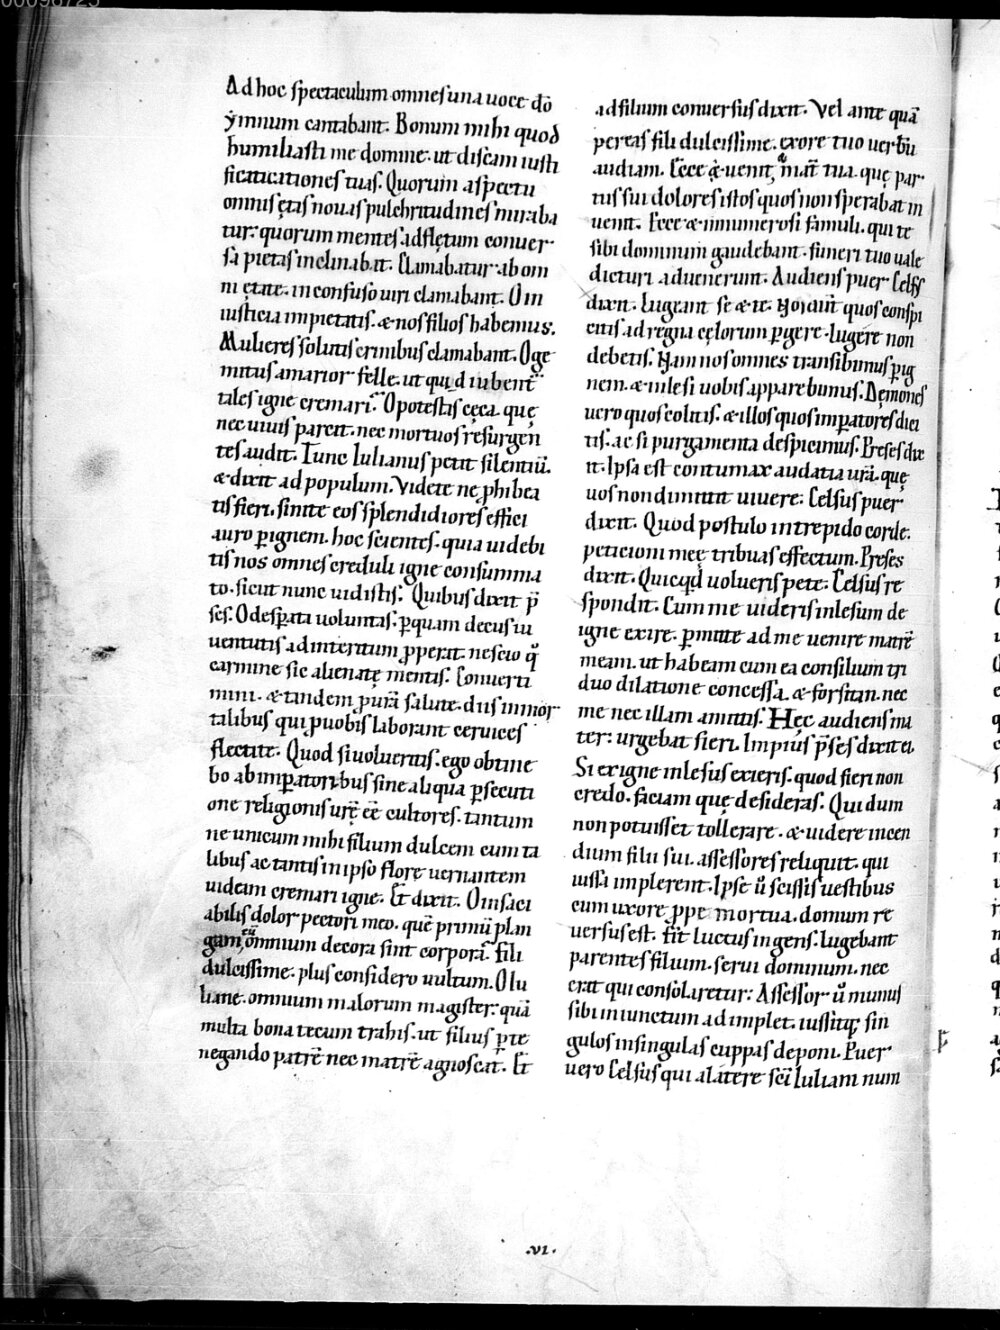 Ad hoc spectaculum omnes una uoce dõ
ymnum cantabant. Bonum mihi quod
humiliasti me domine. ut discam iusti
ficaticationes tuas. Quorum aspectu
omnis ętas nouas pulchritudines miraba
tur. quorum mentes ad flętum conuer
sa pietas inclinabat. Clamabatur ab om
ni ętate. in confuso uiri clamabant. O in
iusticia impietatis. & nos filios habemus.
Mulieres solutis crinibus clamabant. O ge
mitus amarior felle. ut quid iubent̃
tales igne cremari. O potestas cęca. quę
nec uiuis parcit. nec mortuos resurgen
tes audit. Tunc Iulianus petit silentiũ.
& dixit ad populum. Videte ne ꝓhibea
tis fieri. sinite eos splendidiores effici
auro ꝑ ignem. hoc scientes. quia uidebi
tis nos omnes creduli igne consumma
to. sicut nunc uidistis. Quibus dixit p̃
ses. O desꝑata uoluntas. ꝑ quam decus iu
uentutis ad interitum ꝓperat. nescio q̃
carmine sic alienatę mentis. Conuerti
mini. & tandem ꝓ urã salute. diis inmor
talibus qui ꝓ uobis laborant ceruices
flectite. Quod si uolueritis. ego obtine
bo ab imꝑatoribus sine aliqua ꝑsecuti
one religionis urę̃ eẽ cultores. tantum
ne unicum mihi filium dulcem cum ta
libus ac tantis in ipso florę uernantem
uideam cremari igne. Et dixit. O insaci
abilis dolor pectori meo. quẽ primũ plan
gam, cũ omnium decora sint corpora. fili
dulcissime. plus considero uultum. O Iu
liane. omnium malorum magister. quã
multa bona tecum trahis. ut filius ꝑte
negando patrẽ nec matrẽ agnoscat. Et
ad filium conuersus dixit. Vel ante quã
pereas fili dulcissime. exore tuo uerbũ
audiam. Ecce q̨ uenit, & mat̃ tua. quę par
tus sui dolores istos quos non sperabat in
uenit. Ecce & innumerosi famuli. qui te
sibi dominum gaudebant. funeri tuo uale
dicturi aduenerunt. Audiens puer Celsus
dixit. Lugeant se & it. Nos aut̃ quos conspi
citis ad regna cęlorum ꝑgere. lugere non
debetis. Nam nos omnes transibimus ꝑ ig
nem. & inlesi uobis apparebimus. Dęmones
uero quos colitis. & illos quos imꝑatores dici
tis. ac si purgamenta despicimus. Preses dix
it. Ipsa est contumax audatia urã. quę
uos non dimittit uiuere. Celsus puer
dixit. Quod postulo intrepido corde.
peticioni meę tribuas effectum. Preses
dixit. Quicqd uolueris pete. Celsus re
spondit. Cum me uideris inlesum de
igne exire. ꝑmitte ad me uenire matrẽ
meam. ut habeam cum ea consilium tri
duo dilatione concessa. & forsitan. nec
me nec illam amittis. Hęc audiens ma
ter. urgebat fieri. Impius p̃ses dixit ei.
Si ex igne inlesus exieris. quod fieri non
credo. faciam quę desideras. Qui dum
non potuisset tollerare. & uidere incen
dium filii sui. assessores reliquit. qui
iussa implerent. Ipse ũ scissis uestibus
cum uxore ꝓpe mortua. domum re
uersus est. Fit luctus ingens. lugebant
parentes filium. serui dominum. nec
erat qui consolaretur. Assessor ũ munus
sibi iniunctum adimplet. iussitq; sin
gulos in singulas cuppas deponi. Puer
uero Celsus qui a latere sc̃i Iuliani num
.VI.